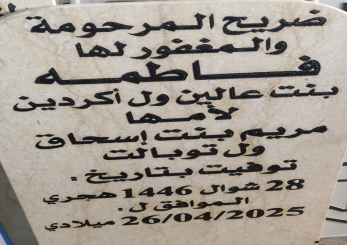 ضريح المرحومة
والمغفور لها
فاطمه
بنت عالين ول أكردين
لأمها
مريم بنت إسحاق
ول توبالت
توفيت بتاريخ:
28 شوال 1446 هجري
الموافق ل:
26/04/2025 ميلادي